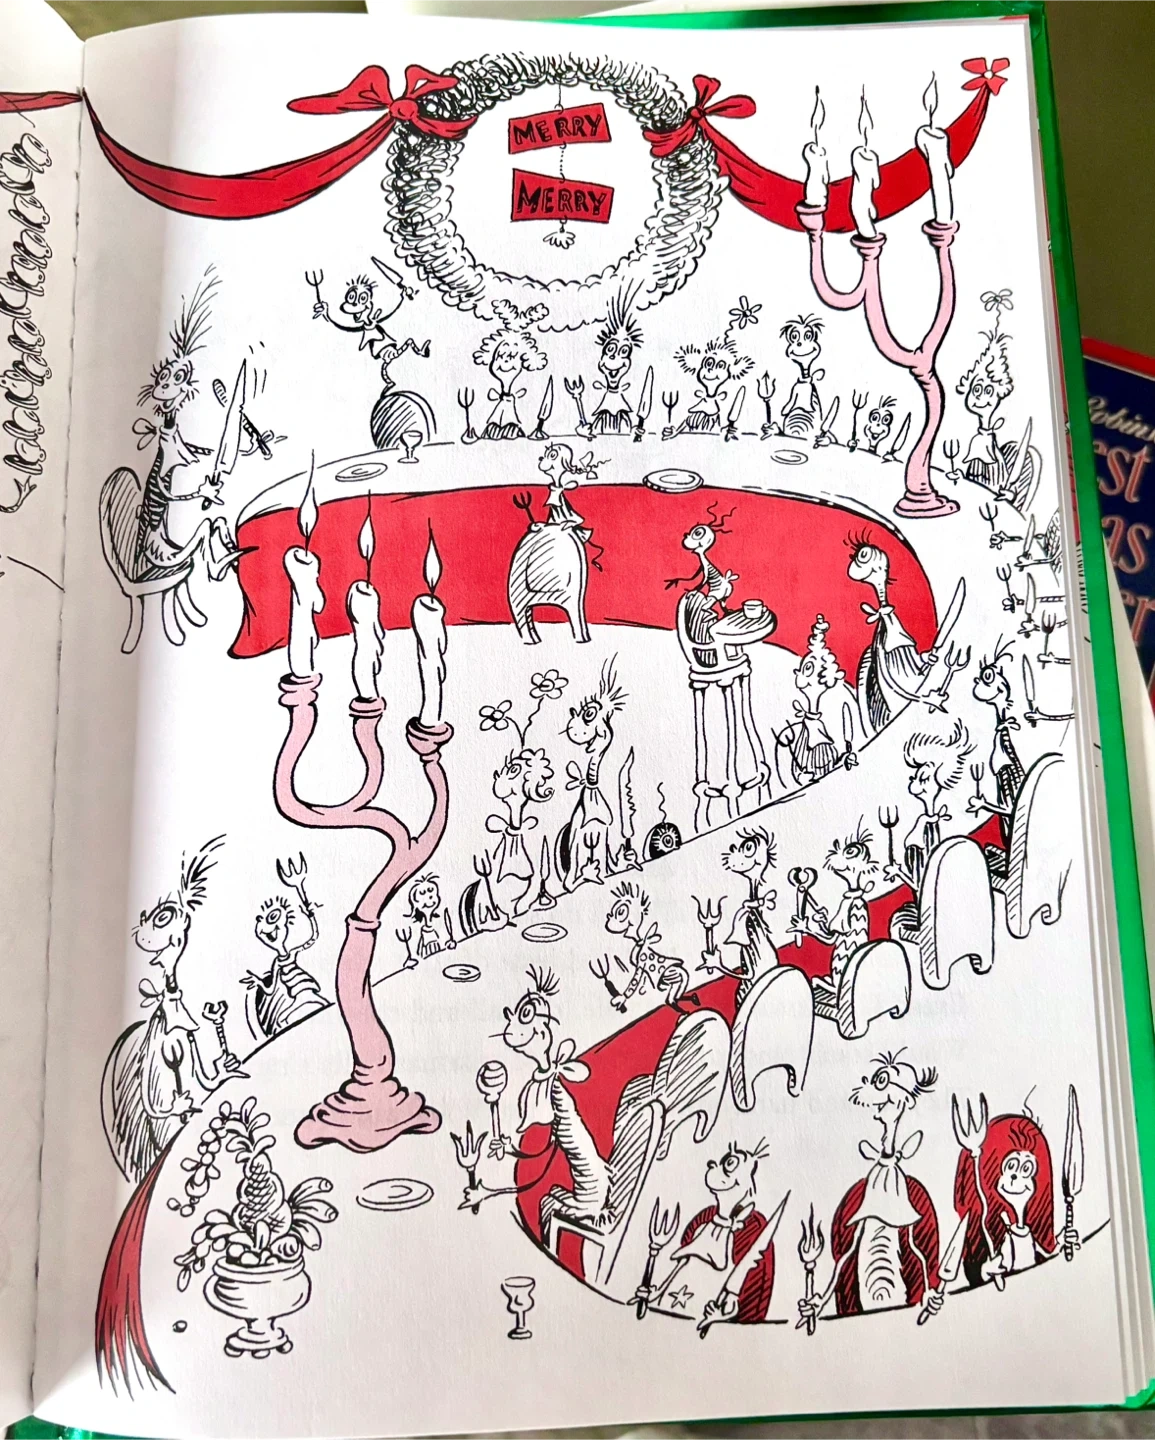 MERRY
MERRY
Robins
est
as
er